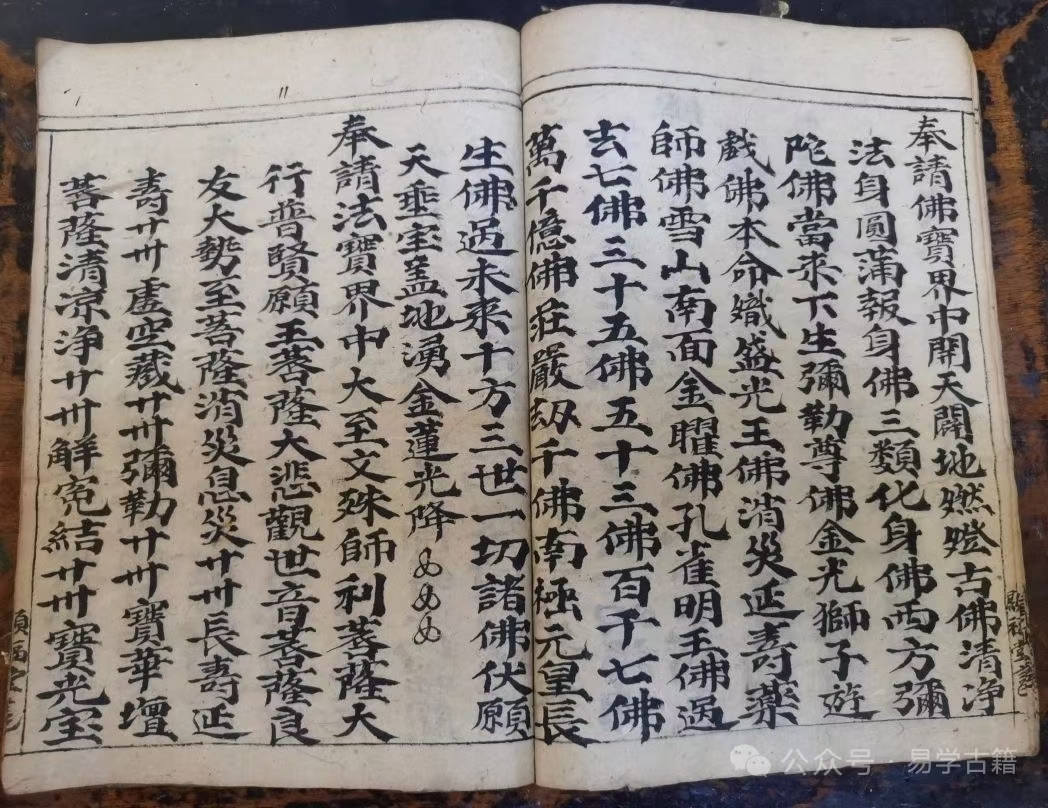 奉請佛寶界中開天闢地燃燈古佛清净
法身圓蒲報身佛三類化身佛西方彌
陀佛當来下生彌勒尊佛金光獅子遊
戲佛本命熾盛光王佛消災延壽藥
師佛雪山南面金曜佛孔雀明王佛過
去七佛三十五佛五十三佛百千七佛
萬千億佛莊嚴刼千佛南極元皇長
生佛過未来十方三世一切諸佛伏願
天垂宝盖地湧金蓮光降
奉請法寶界中大至文殊師利菩薩大
行普賢願王菩薩大悲觀世音菩薩良
友大勢至菩薩消災息災廿卅長壽延
壽廿卅虚空藏廿卅彌勒廿卅寶華壇
菩薩清凉净廿卅解寃結廿卅寶光宝
公众号·易学古籍